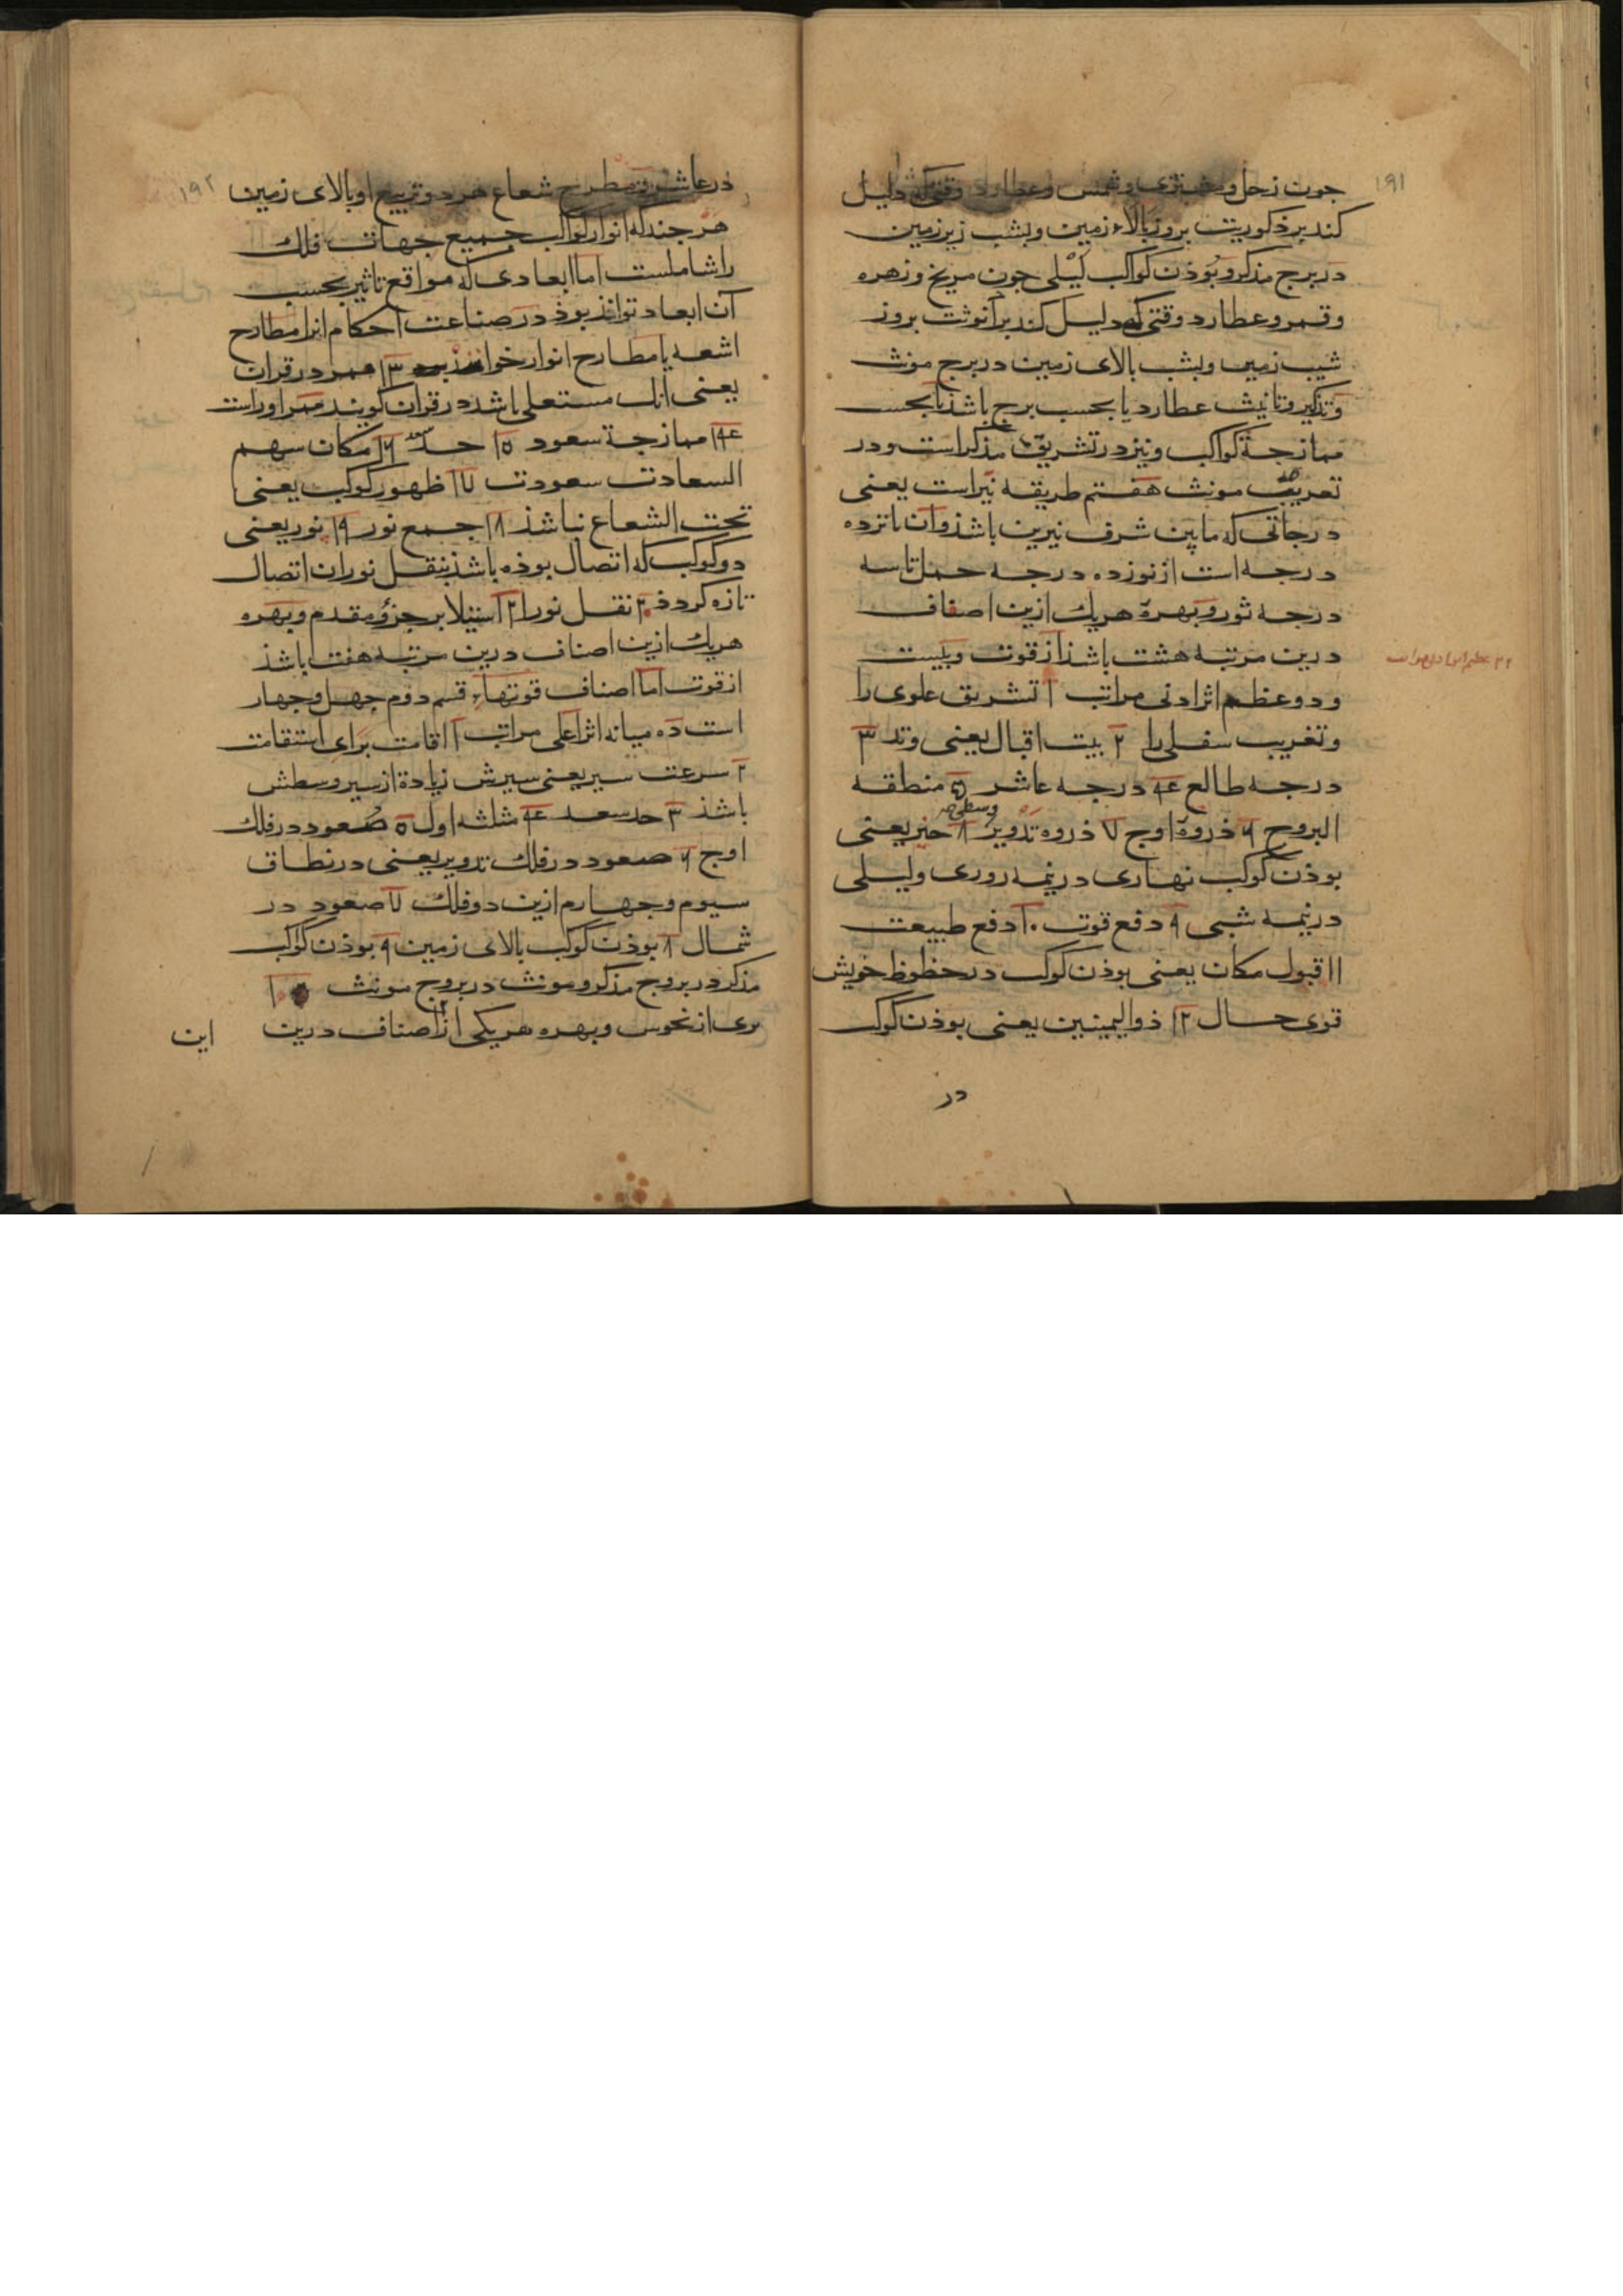 ۱۹۱
جون زحل و مشتری و شمس و عطارد وقتی که دلیل
کند بر ذکوریت بروز بالاء زمین و بشب زیر زمین
در برج مذکر و بوذن کواکب لیلی جون مریخ و زهره
و قمر و عطارد وقتی که دلیل کند بر انوثت بروز
شیب زمین و بشب بالای زمین در برج مونث
و تذکیر و تانیث عطارد یا بحسب برج باشذ یا بحسب
ممازجهٔ کواکب و نیز در تشریق مذکر است و در
تغریب مونث هفتم طریقه نیراست یعنی
درجاتی که مابین شرف نیرین باشذ و آن بانزده
درجه است از نوزده درجه حمل تا سه
درجه ثور و بهرهٔ هریک ازین اصناف
درین مرتبه هشت باشذ از قوت و بیست
و دو عظیم اثر ادنی مراتب ۱ تشریق علوی را
و تغریب سفلی را ۲ بیت اقبال یعنی وتد ۳
درجه طالع ۴ درجه عاشر ۵ منطقه
البروج ۶ ذروهٔ اوج ۷ ذروه تدویر وسطی ۸ حیز یعنی
بوذن کوکب نهاری در نیمه روزی و لیلی
در نیمه شبی ۹ دفع قوت ۱۰ دفع طبیعت
۱۱ قبول مکان یعنی بوذن کوکب در حظوظ خویش
قوی حال ۱۲ ذوالیمینین یعنی بوذن کوکب
در
۱۹۲
در عاشر و مطرح شعاع هر دو تربیع او بالای زمین
هر جند که انوار کواکب جمیع جهات فلک
را شاملست اما ابعادی که مواقع تاثیر بحسب
آن ابعاد تواند بوذ در صناعت احکام انرا مطارح
اشعه یا مطارح انوار خوانند ۱۳ ممر در قران
یعنی انک مستعلی باشد در قران کویند ممر اوراست
۱۴ ممازجهٔ سعود ۱۵ حد ۱۶ مکان سهم
السعادت سعودت ۱۷ ظهور کوکب یعنی
تحت الشعاع نباشذ ۱۸ جمع نور ۱۹ نور یعنی
دو کوکب که اتصال بوذه باشذ بنقل نور ان اتصال
تازه کردذ ۲۰ نقل نور ۲۱ استیلا بر جزؤ مقدم و بهره
هریک ازین اصناف درین مرتبه هفت باشذ
از قوت اما اصناف قوتهاء قسم دوم جهل و جهار
است ده میانه اثر اعلی مراتب ۱ اقامت برای استقامت
۲ سرعت سیر یعنی سیرش زیادة از سیر وسطش
باشذ ۳ حد سعد ۴ مثلثه اول ۵ صعود در فلک
اوج ۶ صعود در فلک تدویر یعنی در نطاق
سیوم و جهارم ازین دو فلک ۷ صعود در
شمال ۸ بوذن کوکب بالای زمین ۹ بوذن کوکب
مذکر در بروج مذکر و مونث در بروج مونث ۱۰
بری از نحوس و بهره هر یکی از اصناف درین
این